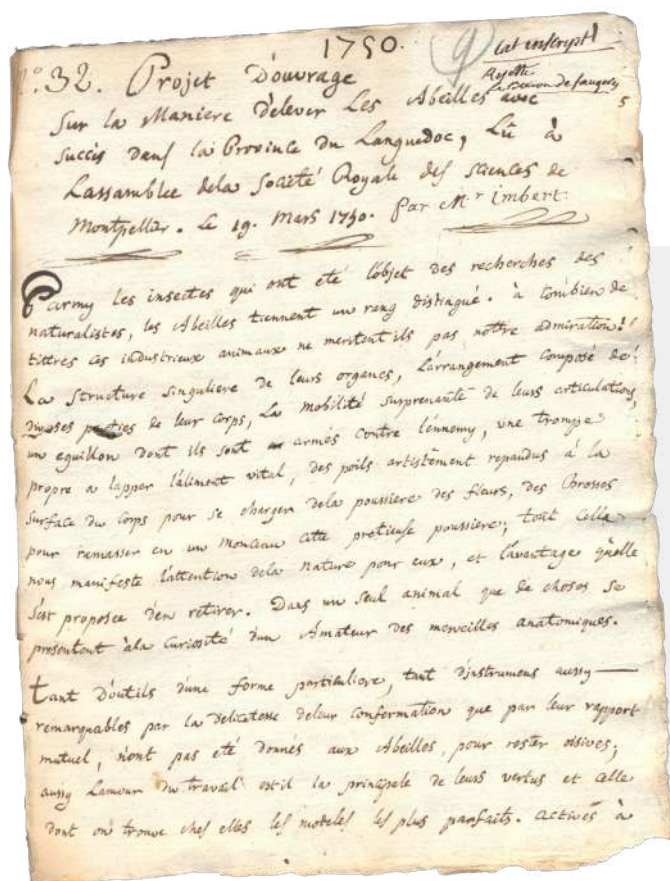 1750.
9
Cat inscript
N.º 32. Projet D'ouvrage
Le Baron de faugeres
5
Sur la Maniere d'elever Les Abeilles avec
Succès dans la Province du Languedoc, Lû à
Lassamblée dela Societé Royale des Sciences de
Montpellier. Le 19. Mars 1750. Par Mr imbert.
Parmy les insectes qui ont eté l'objet des recherches des
naturalistes, les Abeilles tiennent un rang distingué. à combien de
tittres ces industrieux animaux ne meritent ils pas nottre admiration!
La structure singuliere de leurs organes, L'arrangement composé de
diverses parties de leur corps, La mobilité surprenante de leurs articulations,
un eguillon dont ils sont armés contre l'ennemy, une trompe
propre a lapper l'aliment vital, des poils artistement repandus à la
surface du corps pour se charger dela poussiere des fleurs, des brosses
pour ramasser en un monceau cette pretieuse poussiere; tout cella
nous manifeste l'attention dela nature pour eux, et l'avantage qu'elle
s'est proposée d'en retirer. Dans un seul animal que de choses se
presentent àla curiosité d'un Amateur des merveilles anatomiques.
tant D'outils d'une forme particuliere, tant d'instrumens aussy
remarquables par la delicatesse deleur conformation que par leur rapport
mutuel, n'ont pas eté donnés aux Abeilles, pour rester oisives;
aussy L'amour du travail est il la principale de leurs vertus et celle
dont on trouve chés elles les modeles les plus parfaits. actives à